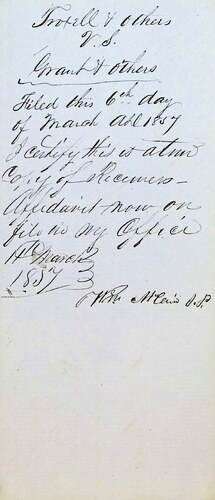 Troxell & others
V.S.
Grant & others
Filed this 6th day
of March AD 1857
I certify this is a true
Copy of Receivers
Affidavit now on
file in my Office
March
1857